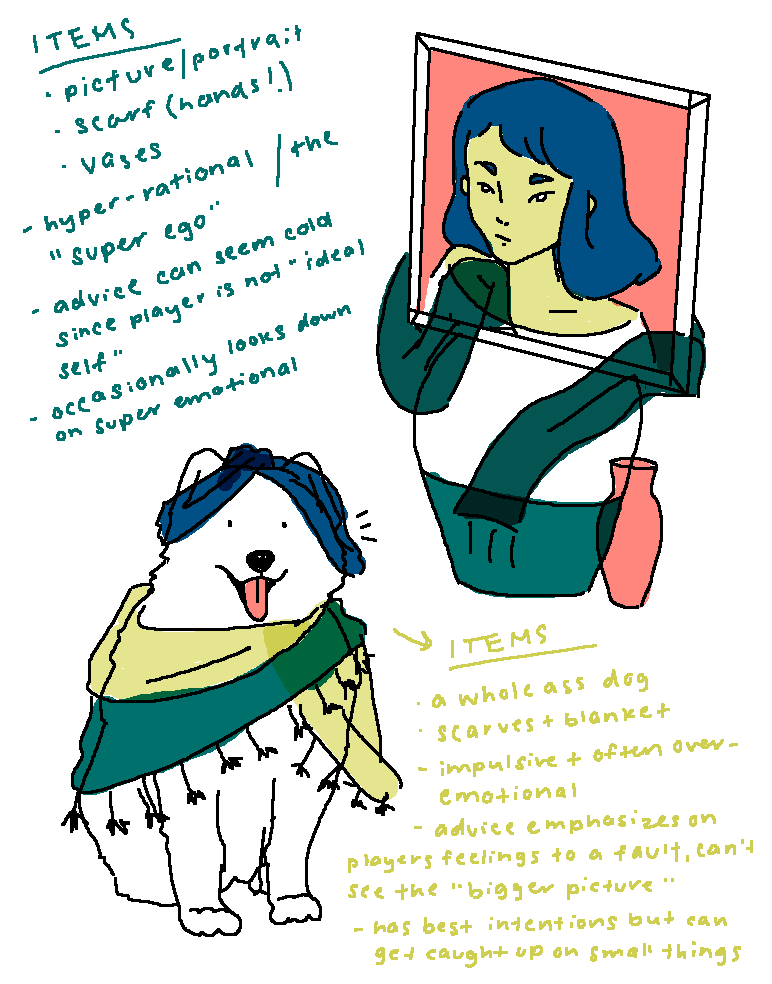 ITEMS
· picture/portrait
· scarf (hands!)
· vases
- hyper-rational / the
"super ego"
- advice can seem cold
since player is not "ideal
self"
- occasionally looks down
on super emotional
ITEMS
· a whole ass dog
· scarves + blanket
- impulsive + often over-
emotional
- advice emphasizes on
players feelings to a fault, can't
see the "bigger picture"
- has best intentions but can
get caught up on small things